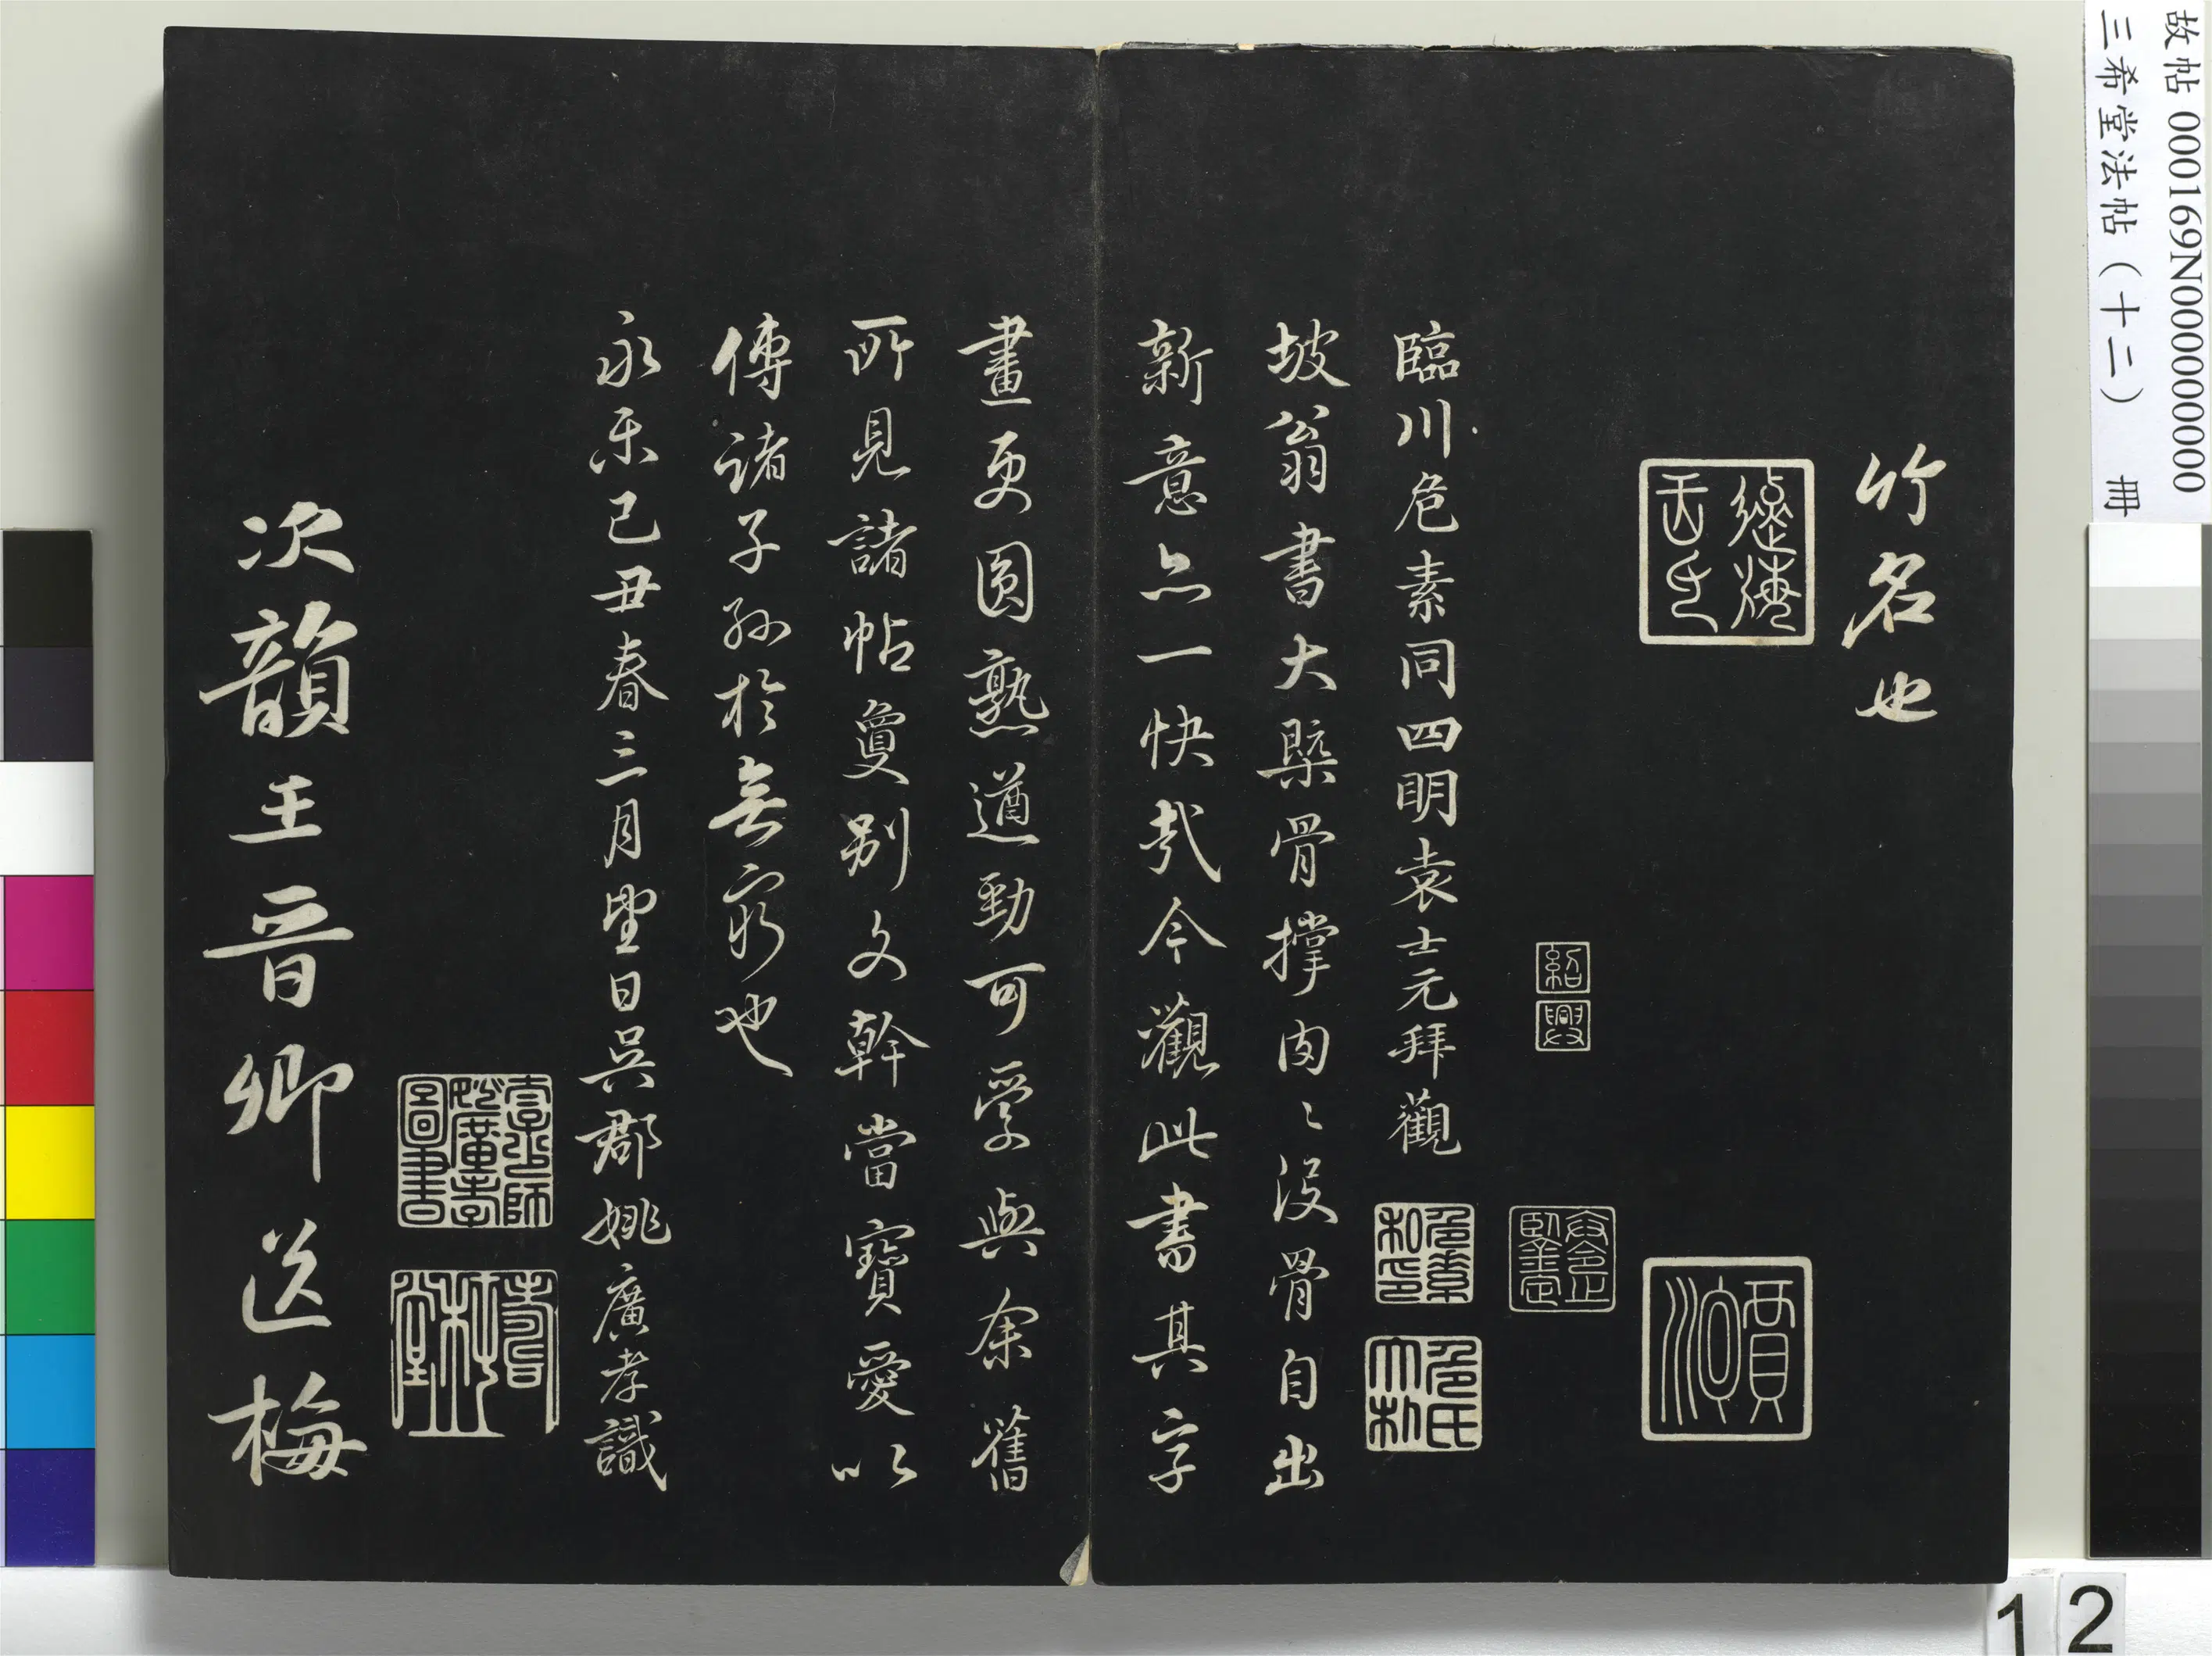 故帖 000169N000000000
三希堂法帖（十二） 冊
竹名也
紹
興
臨川危素同四明袁士元拜觀
坡翁書大槩骨撐肉〻沒骨自出
新意亦一快哉今觀此書其字
畫更圓熟遒勁可學與余舊
所見諸帖敻別文幹當寶愛以
傳諸子孫於無窮也
永樂己丑春三月望日吳郡姚廣孝識
次韻王晉卿送梅
12